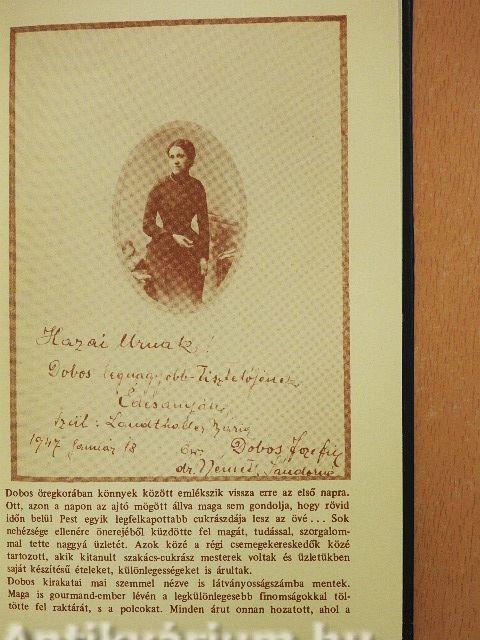 Hazai Urnak!
Dobos legnagyobb Tisztelőjének
Édesanyám
szül: Landthaller Mária
1947 január 18
Dobos Jozefin
dr. Németh Sándorné
Dobos öregkorában könnyek között emlékszik vissza erre az első napra.
Ott, azon a napon az ajtó mögött állva maga sem gondolja, hogy rövid
időn belül Pest egyik legfelkapottabb cukrászdája lesz az övé... Sok
nehézsége ellenére önerejéből küzdötte fel magát, tudással, szorgalom-
mal tette naggyá üzletét. Azok közé a régi csemegekereskedők közé
tartozott, akik kitanult szakács-cukrász mesterek voltak és üzletükben
saját készítésű ételeket, különlegességeket is árultak.
Dobos kirakatai mai szemmel nézve is látványosságszámba mentek.
Maga is gourmand-ember lévén a legkülönlegesebb finomságokkal töl-
tötte fel raktárát, s a polcokat. Minden árut onnan hozatott, ahol a
Antikvárium.hu